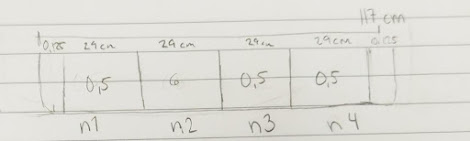 117 cm
29cm 29cm 29cm 29cm
0,5 6 0,5 0,5
n1 n2 n3 n4